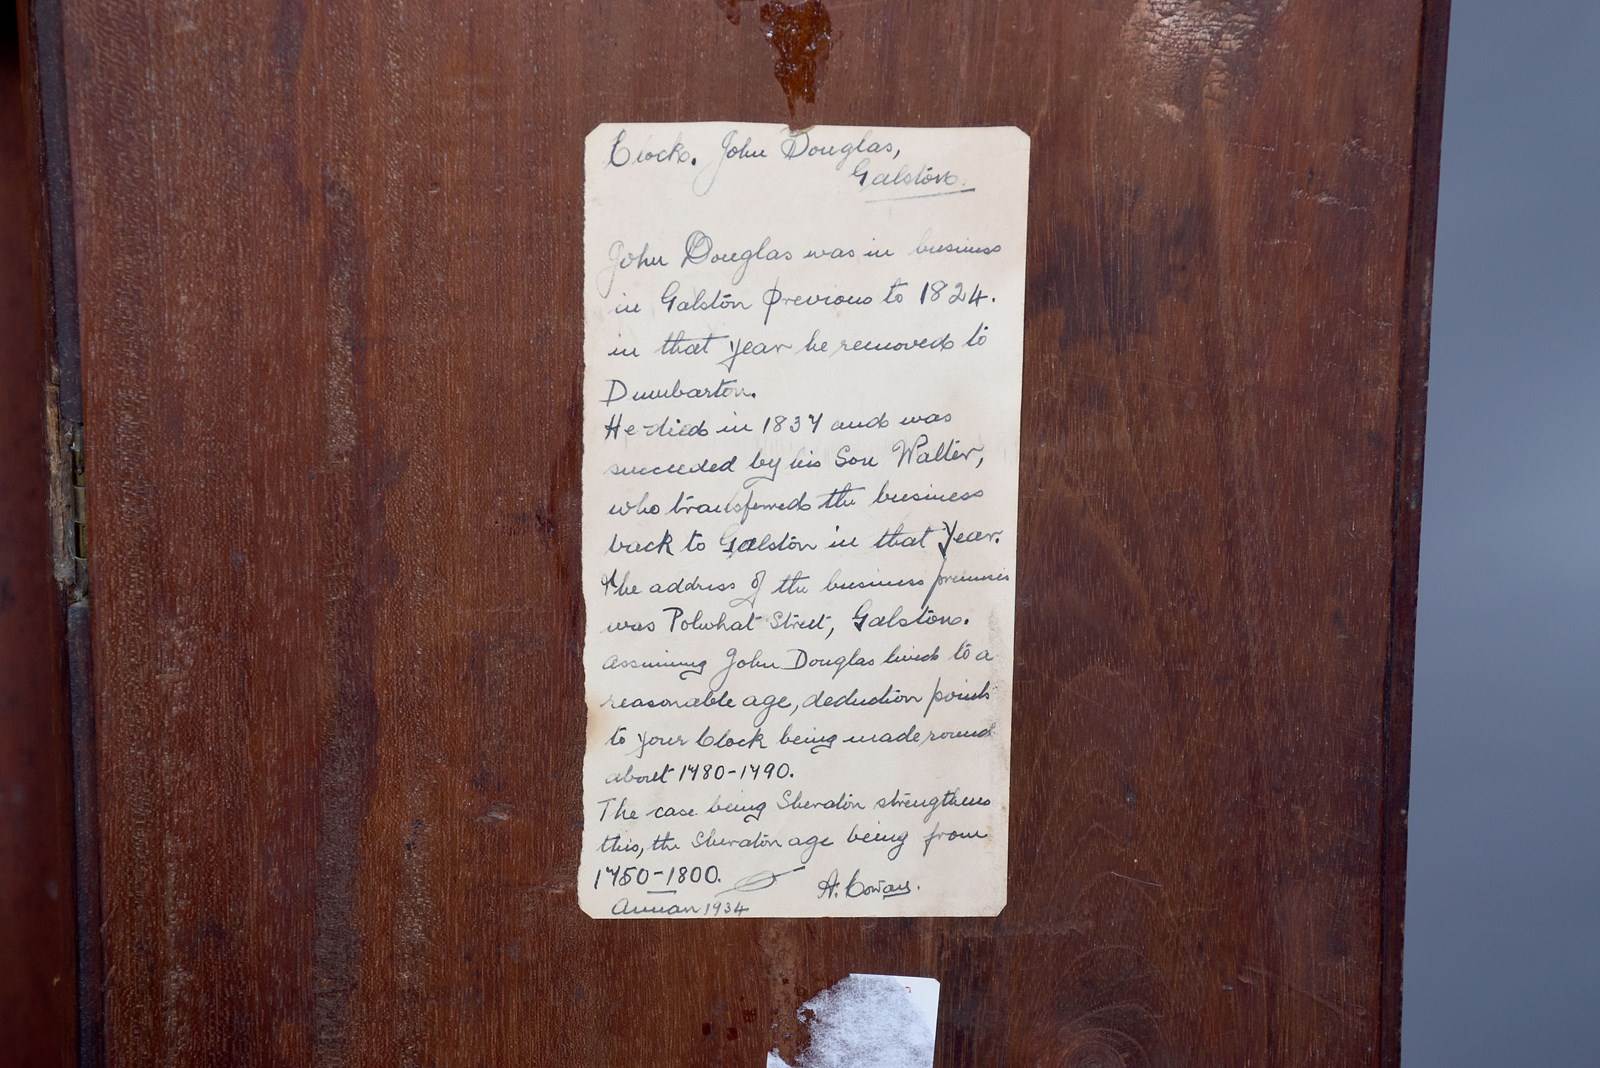 Clock. John Douglas,
Galston.
John Douglas was in business
in Galston previous to 1824.
in that year he removed to
Dumbarton.
He died in 1837 and was
succeeded by his Son Walter,
who transferred the business
back to Galston in that year.
The address of the business premises
was Polwhat Street, Galston.
assuming John Douglas lived to a
reasonable age, deduction points
to your Clock being made round
about 1780-1790.
The case being Sheraton strengthens
this, the Sheraton age being from
1750-1800.
A. Cowan.
Annan 1934